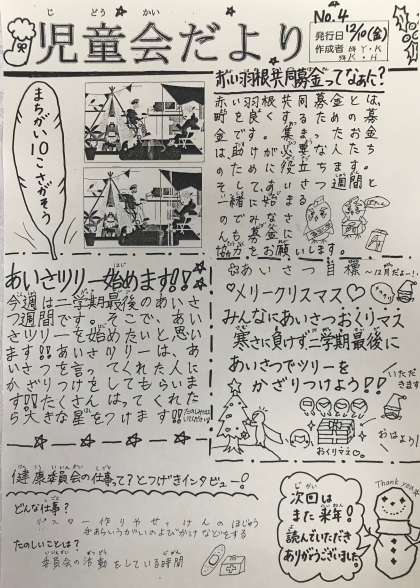 じどうかい
児童会だより
No.4
発行日 12/10(金)
作成者
まちがい10こさがそう
赤い羽根共同募金ってなぁに?
赤い羽根共同募金とは、
町を良くするための募
金です。集まったお金
は助けが必要な人たち
のために役立ちます。
そして、あいさつ週間と
一緒に始まる
のでみなさ
んも募金に
協力をお願いします。
あいさツリー始めます!!
今週は二学期最後のあいさ
つ週間です。そこで、あい
さツリーを始めたいと思い
ます!!あいさツリーは、あ
いさつを言ってくれた人に
かざりつけをしてもらいま
す!!たくさんはってくれた
ら大きな星をつけます!!
あいさつ目標 ~12月だよー!~
♡メリークリスマス♡
みんなにあいさつおくリマス
寒さに負けず二学期最後に
あいさつでツリーを
かざりつけよう!!
いただ
きます
おはよう!
おくりマス
健康委員会の仕事って?とつげきインタビュー!
どんな仕事?
ポスター作りやせっけんのほじゅう
手あらいうがいのよびかけなどをする
たのしいことは?
委員会の活動をしている時間
次回は
また来年!
読んでいただき
ありがうございました。
Thank you